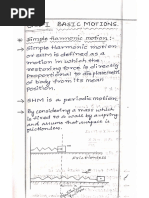 I BASIC MOTIONS
Simple Harmonic motion:-
Simple Harmonic motion
or SHM is defined as a
motion in which the
restoring force is directly
proportional to displacement
of body from its mean
position.
SHM is a periodic motion
By considering a mass which
is fixed to a wall by a spring
and assume that surface is
frictionless.